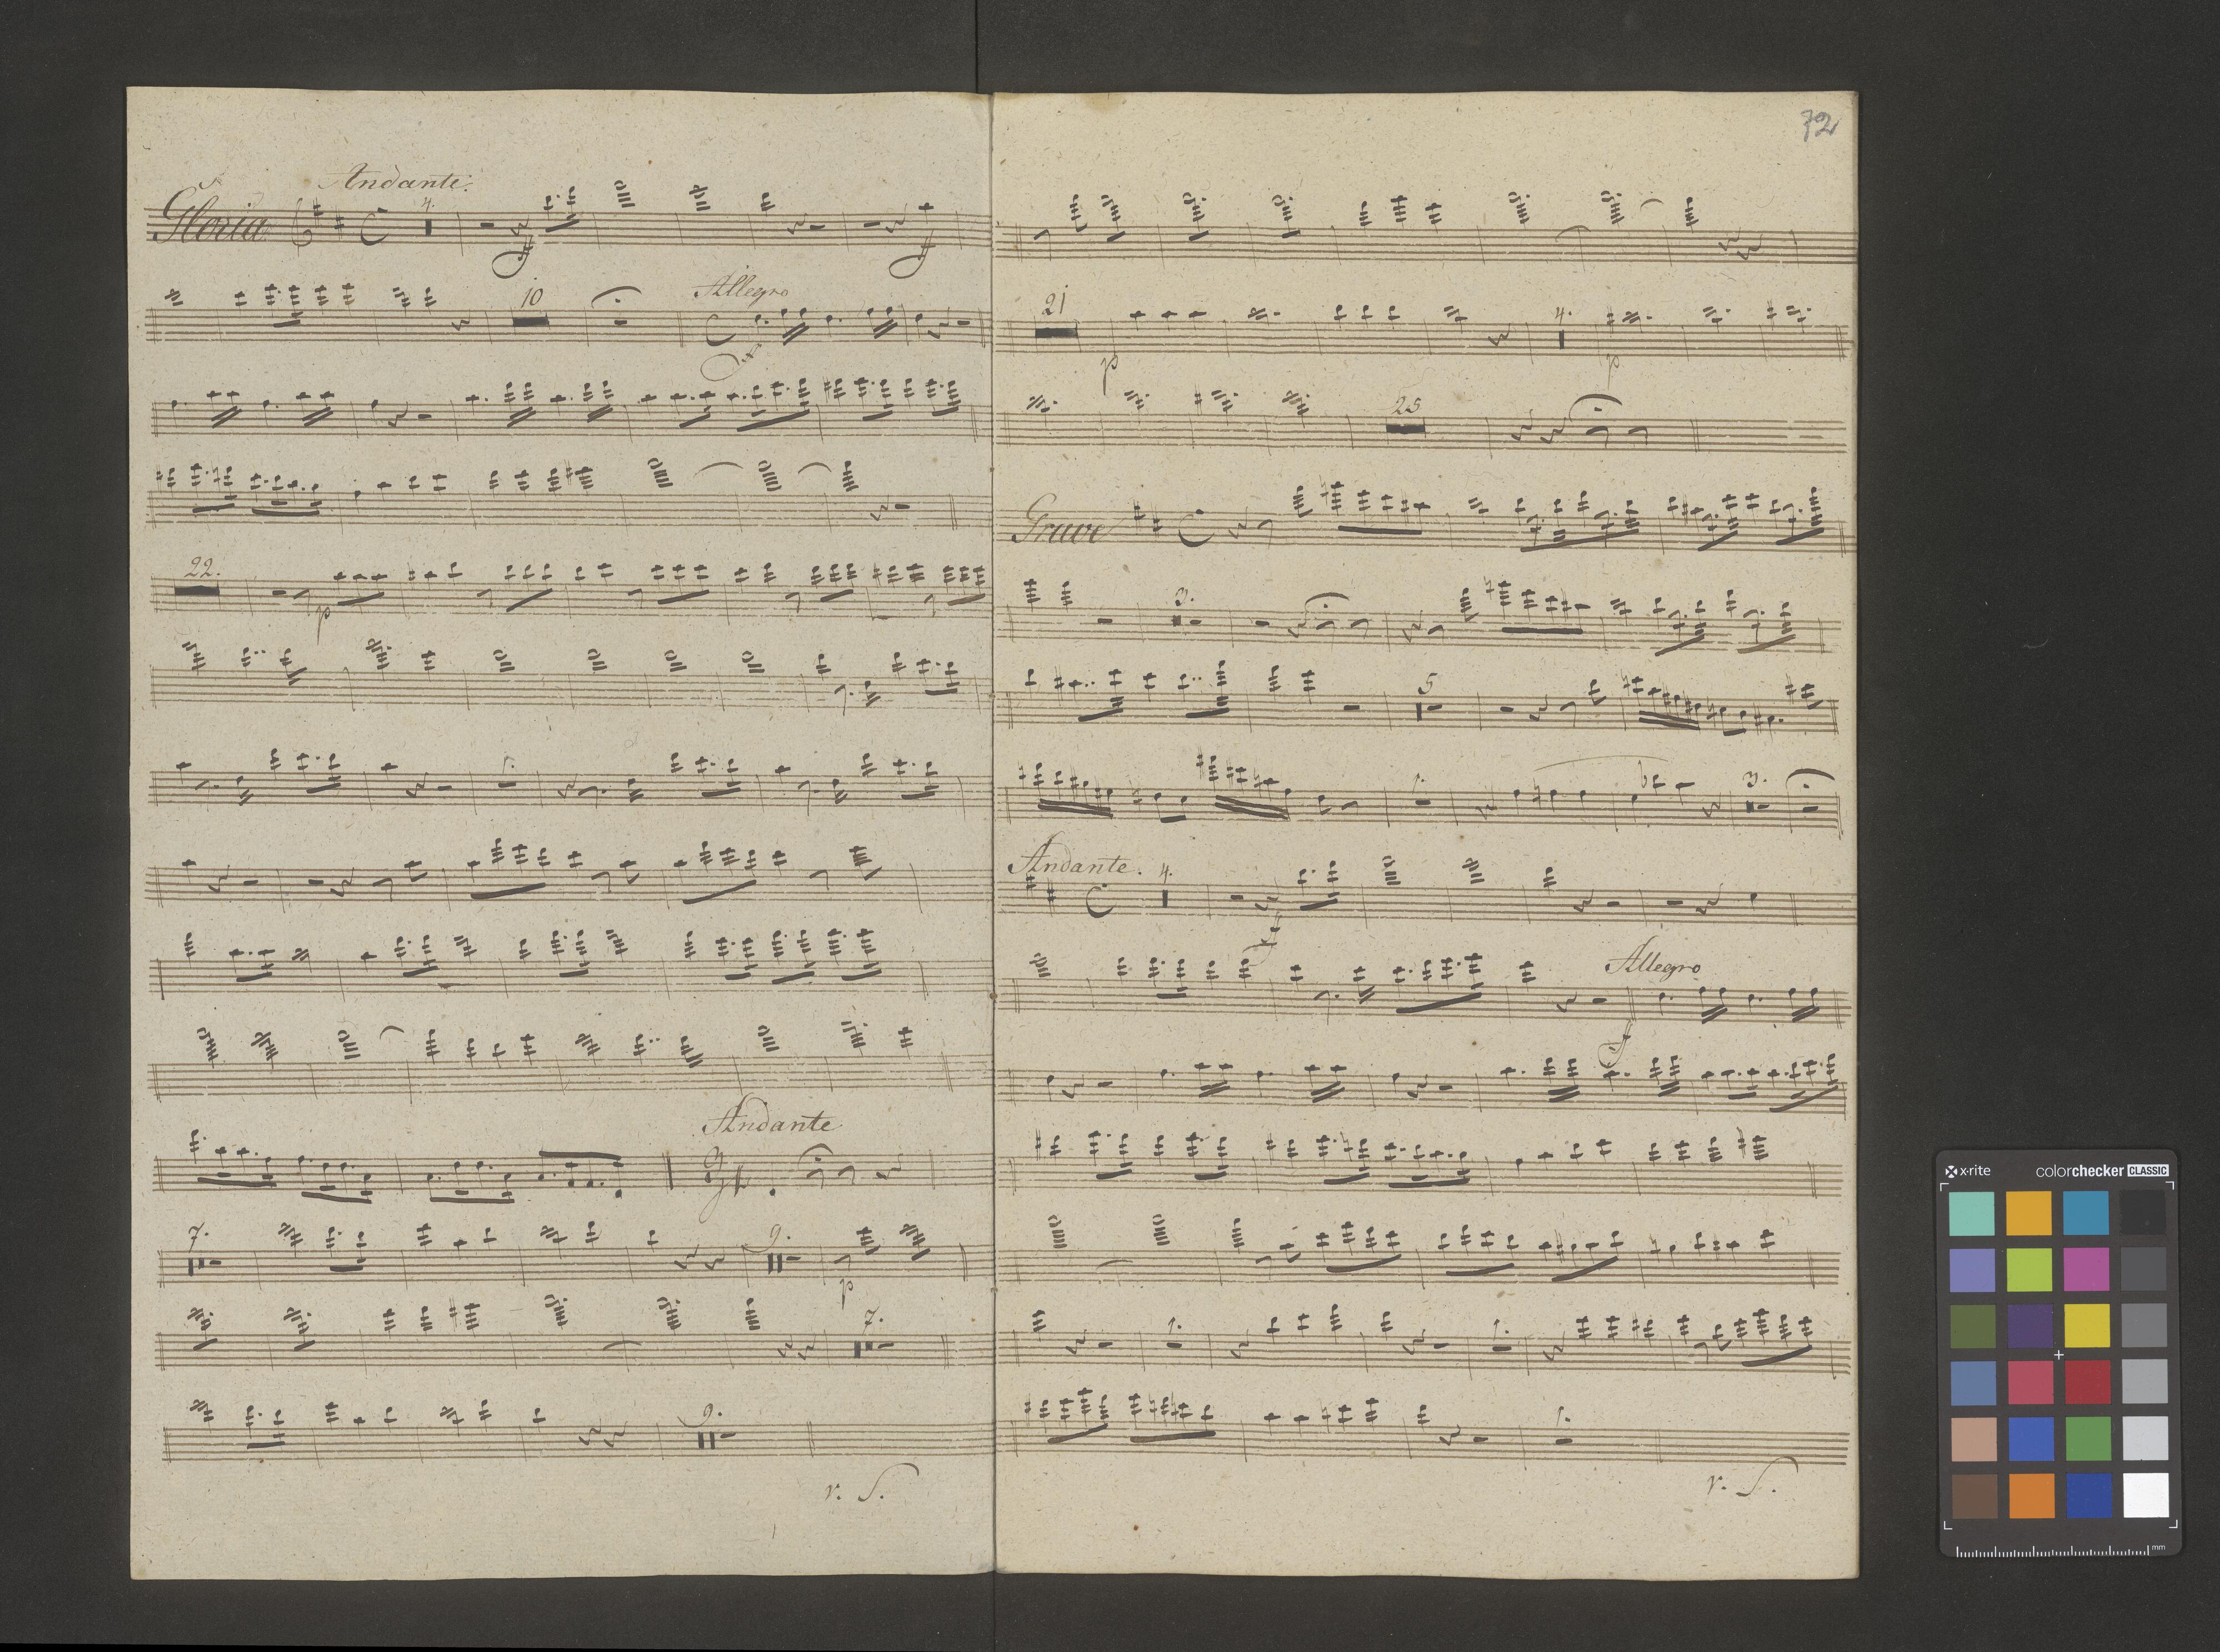 Andante.
Gloria
4.
10
Allegro
22.
p
1.
Andante
7.
9.
p
7.
9.
v. S.
72
21
4.
p
p
25
Grave
3.
5
1.
3.
Andante.
4.
ff
Allegro
f
1.
1.
1.
v. S.
x-rite
colorchecker CLASSIC
mm